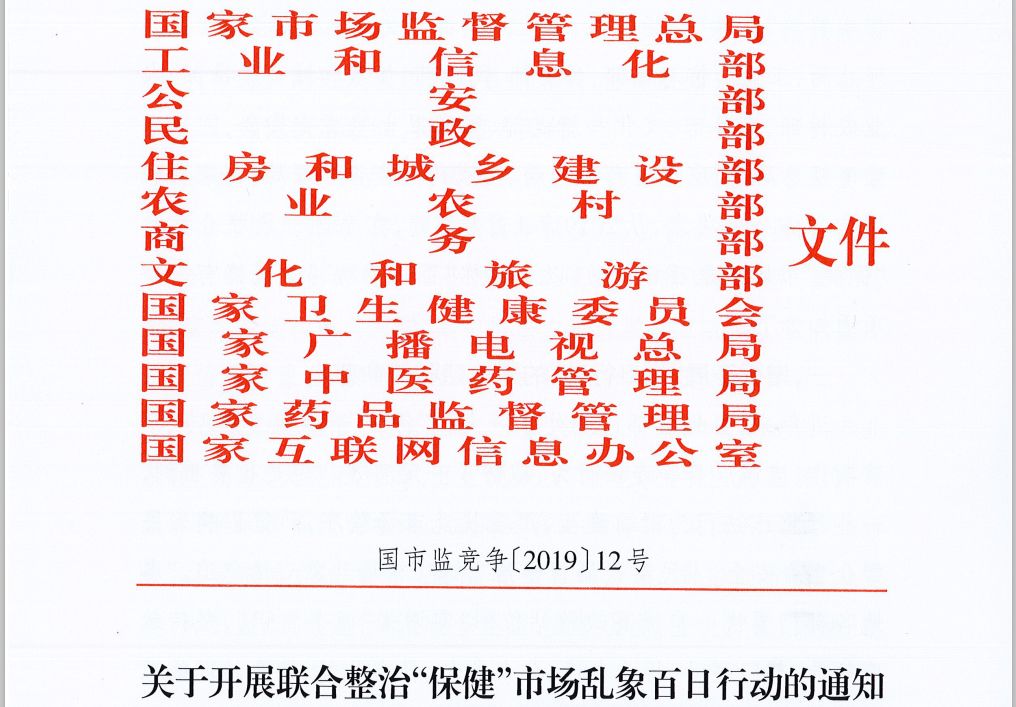 国家市场监督管理总局
工业和信息化部
公安部
民政部
住房和城乡建设部
农业农村部
商务部
文化和旅游部
国家卫生健康委员会
国家广播电视总局
国家中医药管理局
国家药品监督管理局
国家互联网信息办公室
文件
国市监竞争〔2019〕12号
关于开展联合整治“保健”市场乱象百日行动的通知